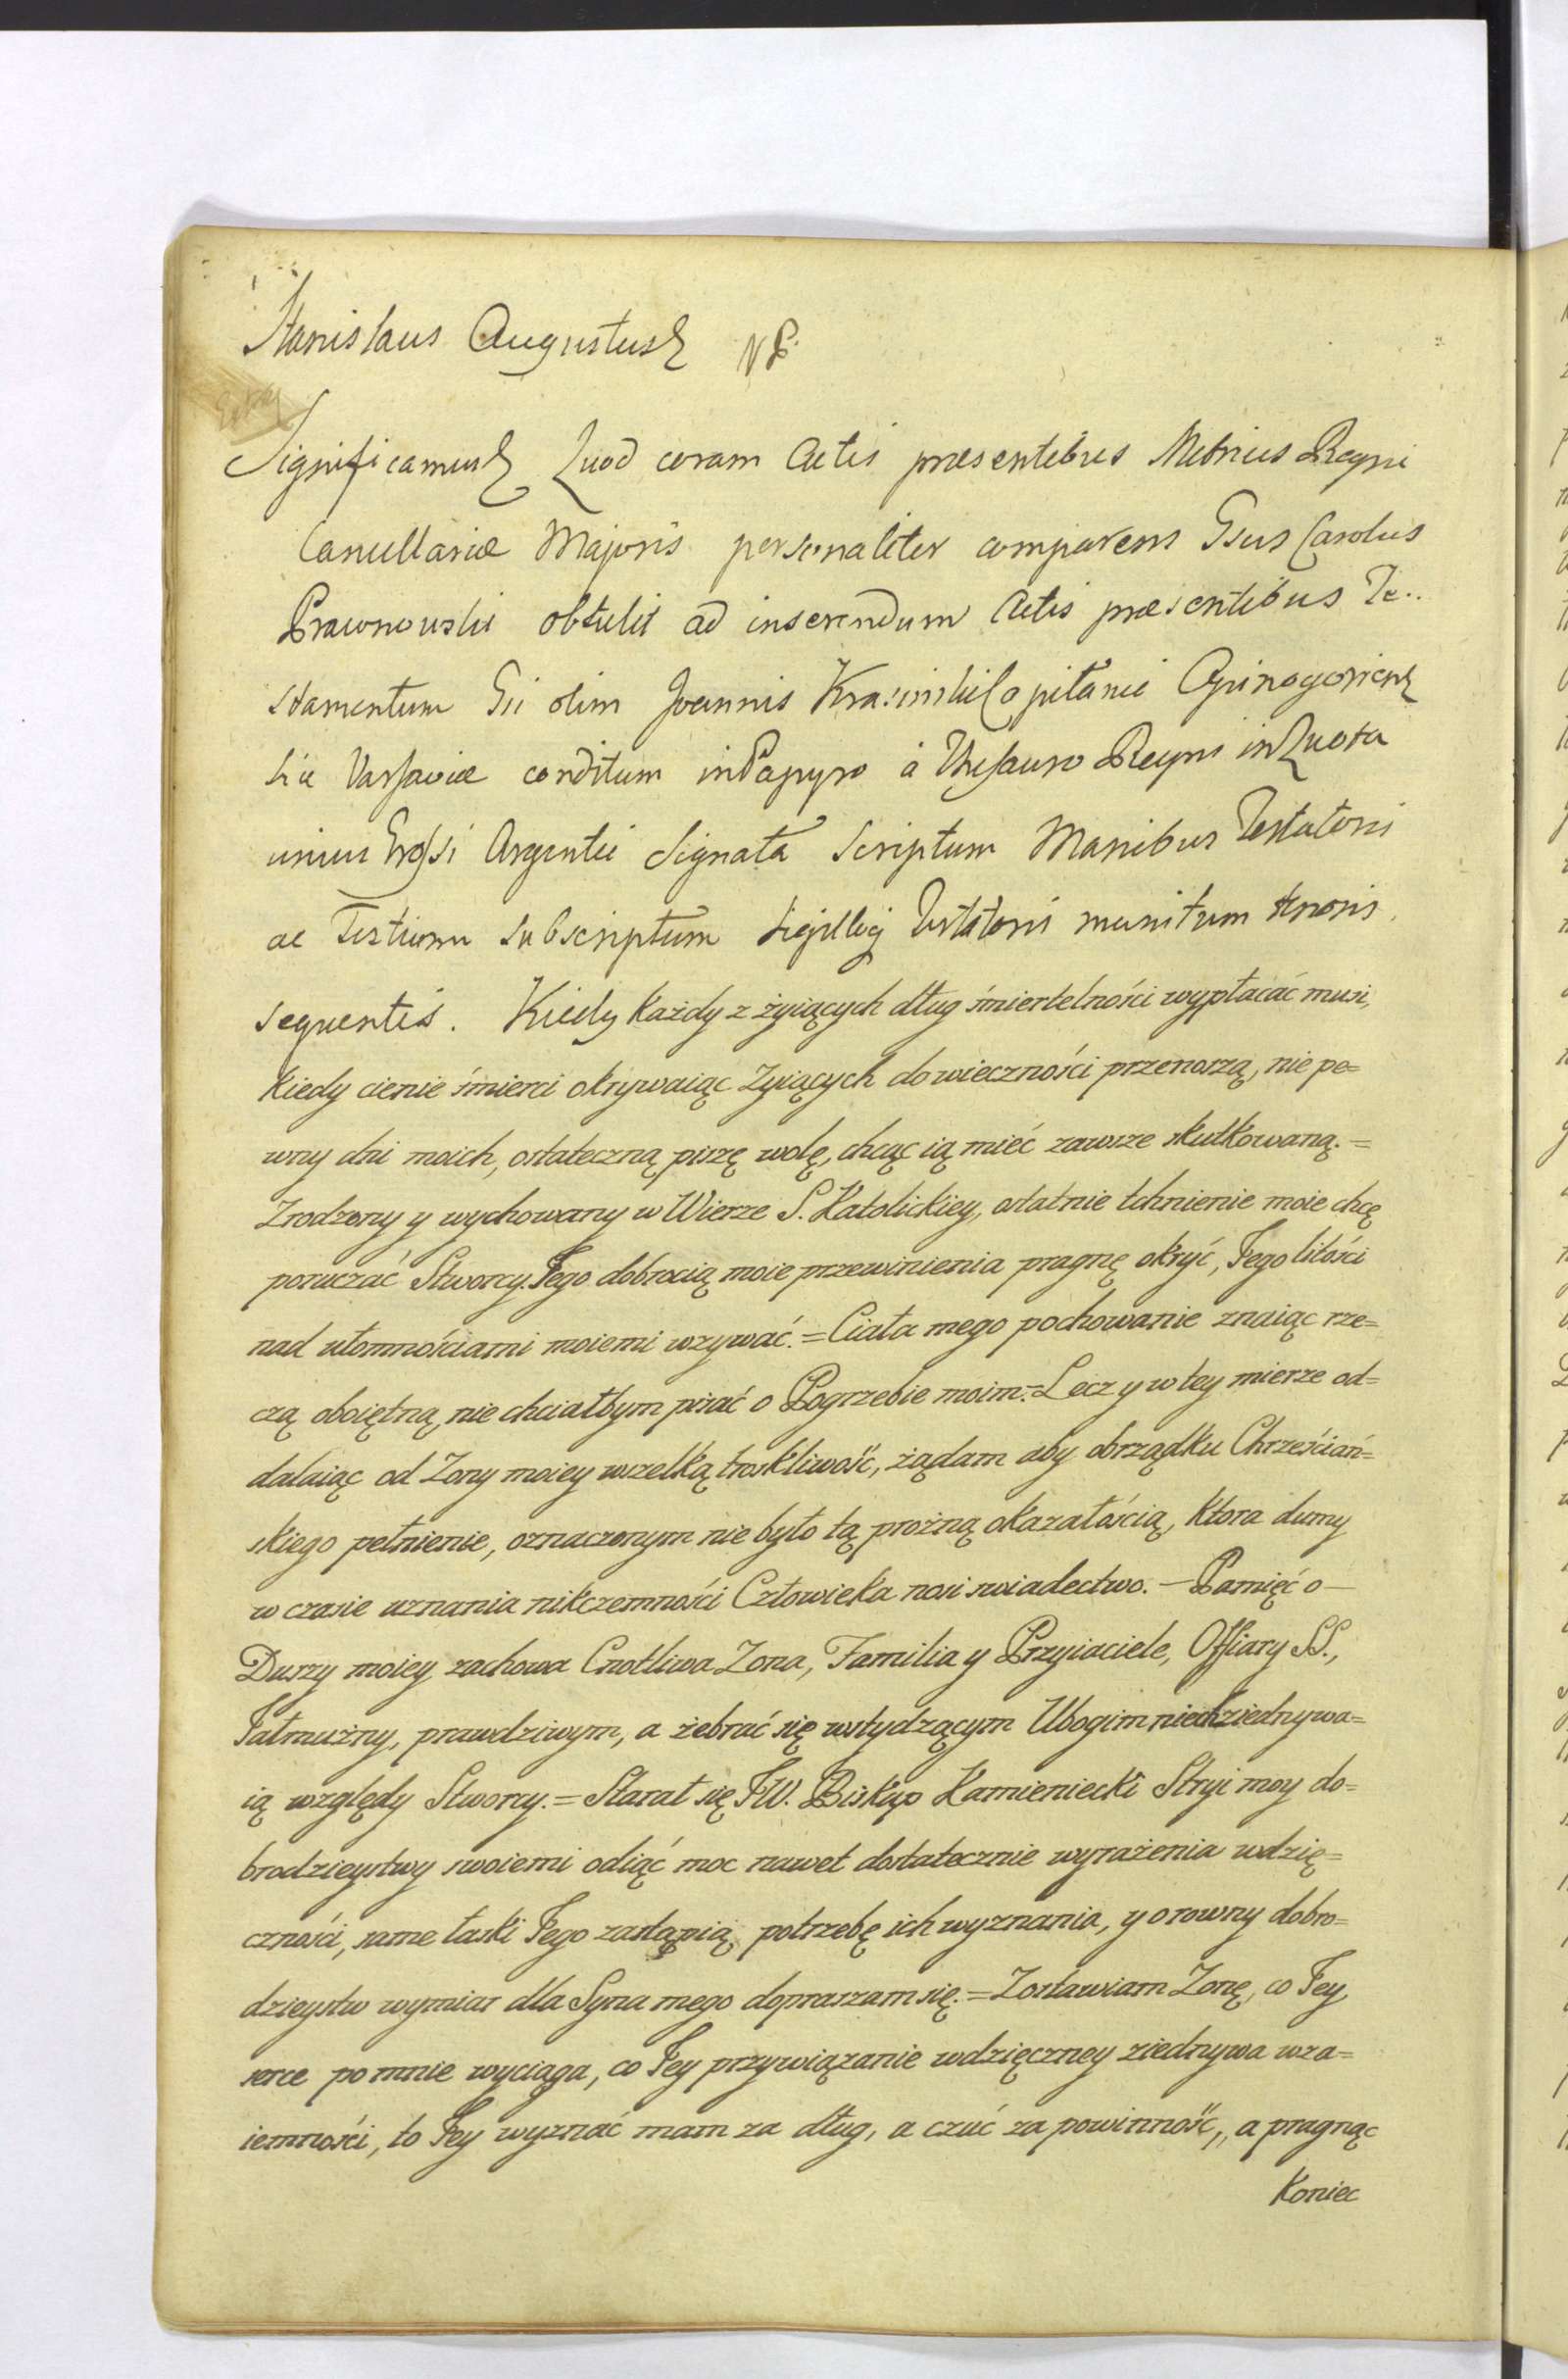 Stanislaus Augustus
Significamus Quod coram Actis præsentibus Metrices Regni
Cancellariæ Majoris personaliter comparens Gsus Carolus
Prawnowski obtulit ad inserendum Actis præsentibus Te..
stamentum Gii olim Joannis Krasinski Capitanei Opinogoriens
hic Varsaviæ conditum in Papyro à Thesauro Regni in Quota
unius Grossi Argentei Signata Scriptum Manibus Testatoris
ac Testium subscriptum Sigilloq Testatoris munitum tenoris
sequentis. Kiedy każdy z żyiących dług śmiertelności wypłacać musi,
kiedy cienie śmierci okrywaiąc Zyiących do wieczności przenoszą, nie pe=
wny dni moich, ostateczną piszę wolę, chcąc ią mieć zawsze skutkowaną. =
Zrodzony y wychowany w Wierze S. Katolickiey, ostatnie tchnienie moie chcę
poruczać Stworcy. Jego dobrocią moie przewinienia pragnę okryć, Jego litości
nad ułomnościami moiemi wzywać. = Ciała mego pochowanie znaiąc rze=
czą oboiętną, nie chciałbym pisać o Pogrzebie moim. = Lecz y w tey mierze od=
dalaiąc od Zony moiey wszelką troskliwość, żądam aby obrządku Chrześciań=
skiego pełnienie, oznaczonym nie było tą prożną okazałością, ktora dumy
w czasie uznania nikczemności Człowieka nosi swiadectwo. — Pamięć o —
Duszy moiey zachowa Cnotliwa Zona, Familia y Przyiaciele, Offiary SS.,
Jałmużny, prawdziwym, a żebrać się wstydzącym Ubogim niech ziednywa=
ią względy Stworcy. = Starał się JW. Biskup Kamieniecki Stryi moy do=
brodzieystwy swoiemi odiąć moc nawet dostatecznie wyrażenia wdzię=
czności, same łaski Jego zastąpią potrzebę ich wyznania, y o rowny dobro=
dzieystw wymiar dla Syna mego dopraszam się. = Zostawiam Zonę, co Jey
serce po mnie wyciąga, co Jey przywiązanie wdzięczney ziednywa wza=
iemności, to Jey wyznać mam za dług, a czuć za powinność, a pragnąc
Koniec